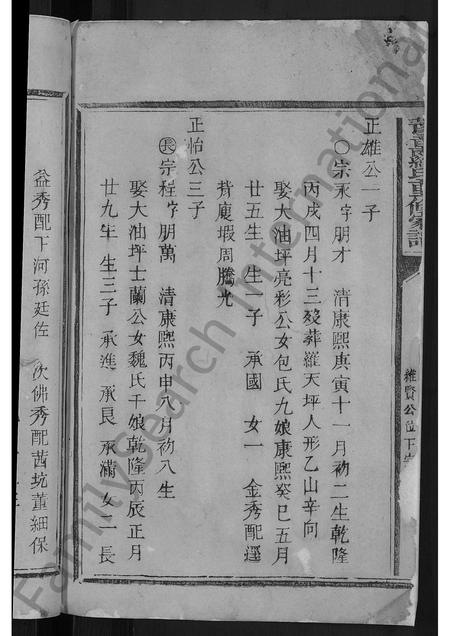 正雄公一子
〇宗永字朋才 清康熙庚寅十一月初二生乾隆
丙戌四月十三歿葬羅天坪人形乙山辛向
娶大油坪亮彩公女包氏九娘康熙癸巳五月
廿五生 生一子 承國 女一 金秀配逕
背廋坂周騰光
正怡公三子
長宗程字朋萬 清康熙丙申八月初八生
娶大油坪士蘭公女魏氏千娘乾隆丙辰正月
廿九生 生三子 承進 承良 承滿 女二 長
益秀配下河孫廷佐 次佛秀配茜坑董細保
氏重修家譜
維賢公位下
FamilySearch International